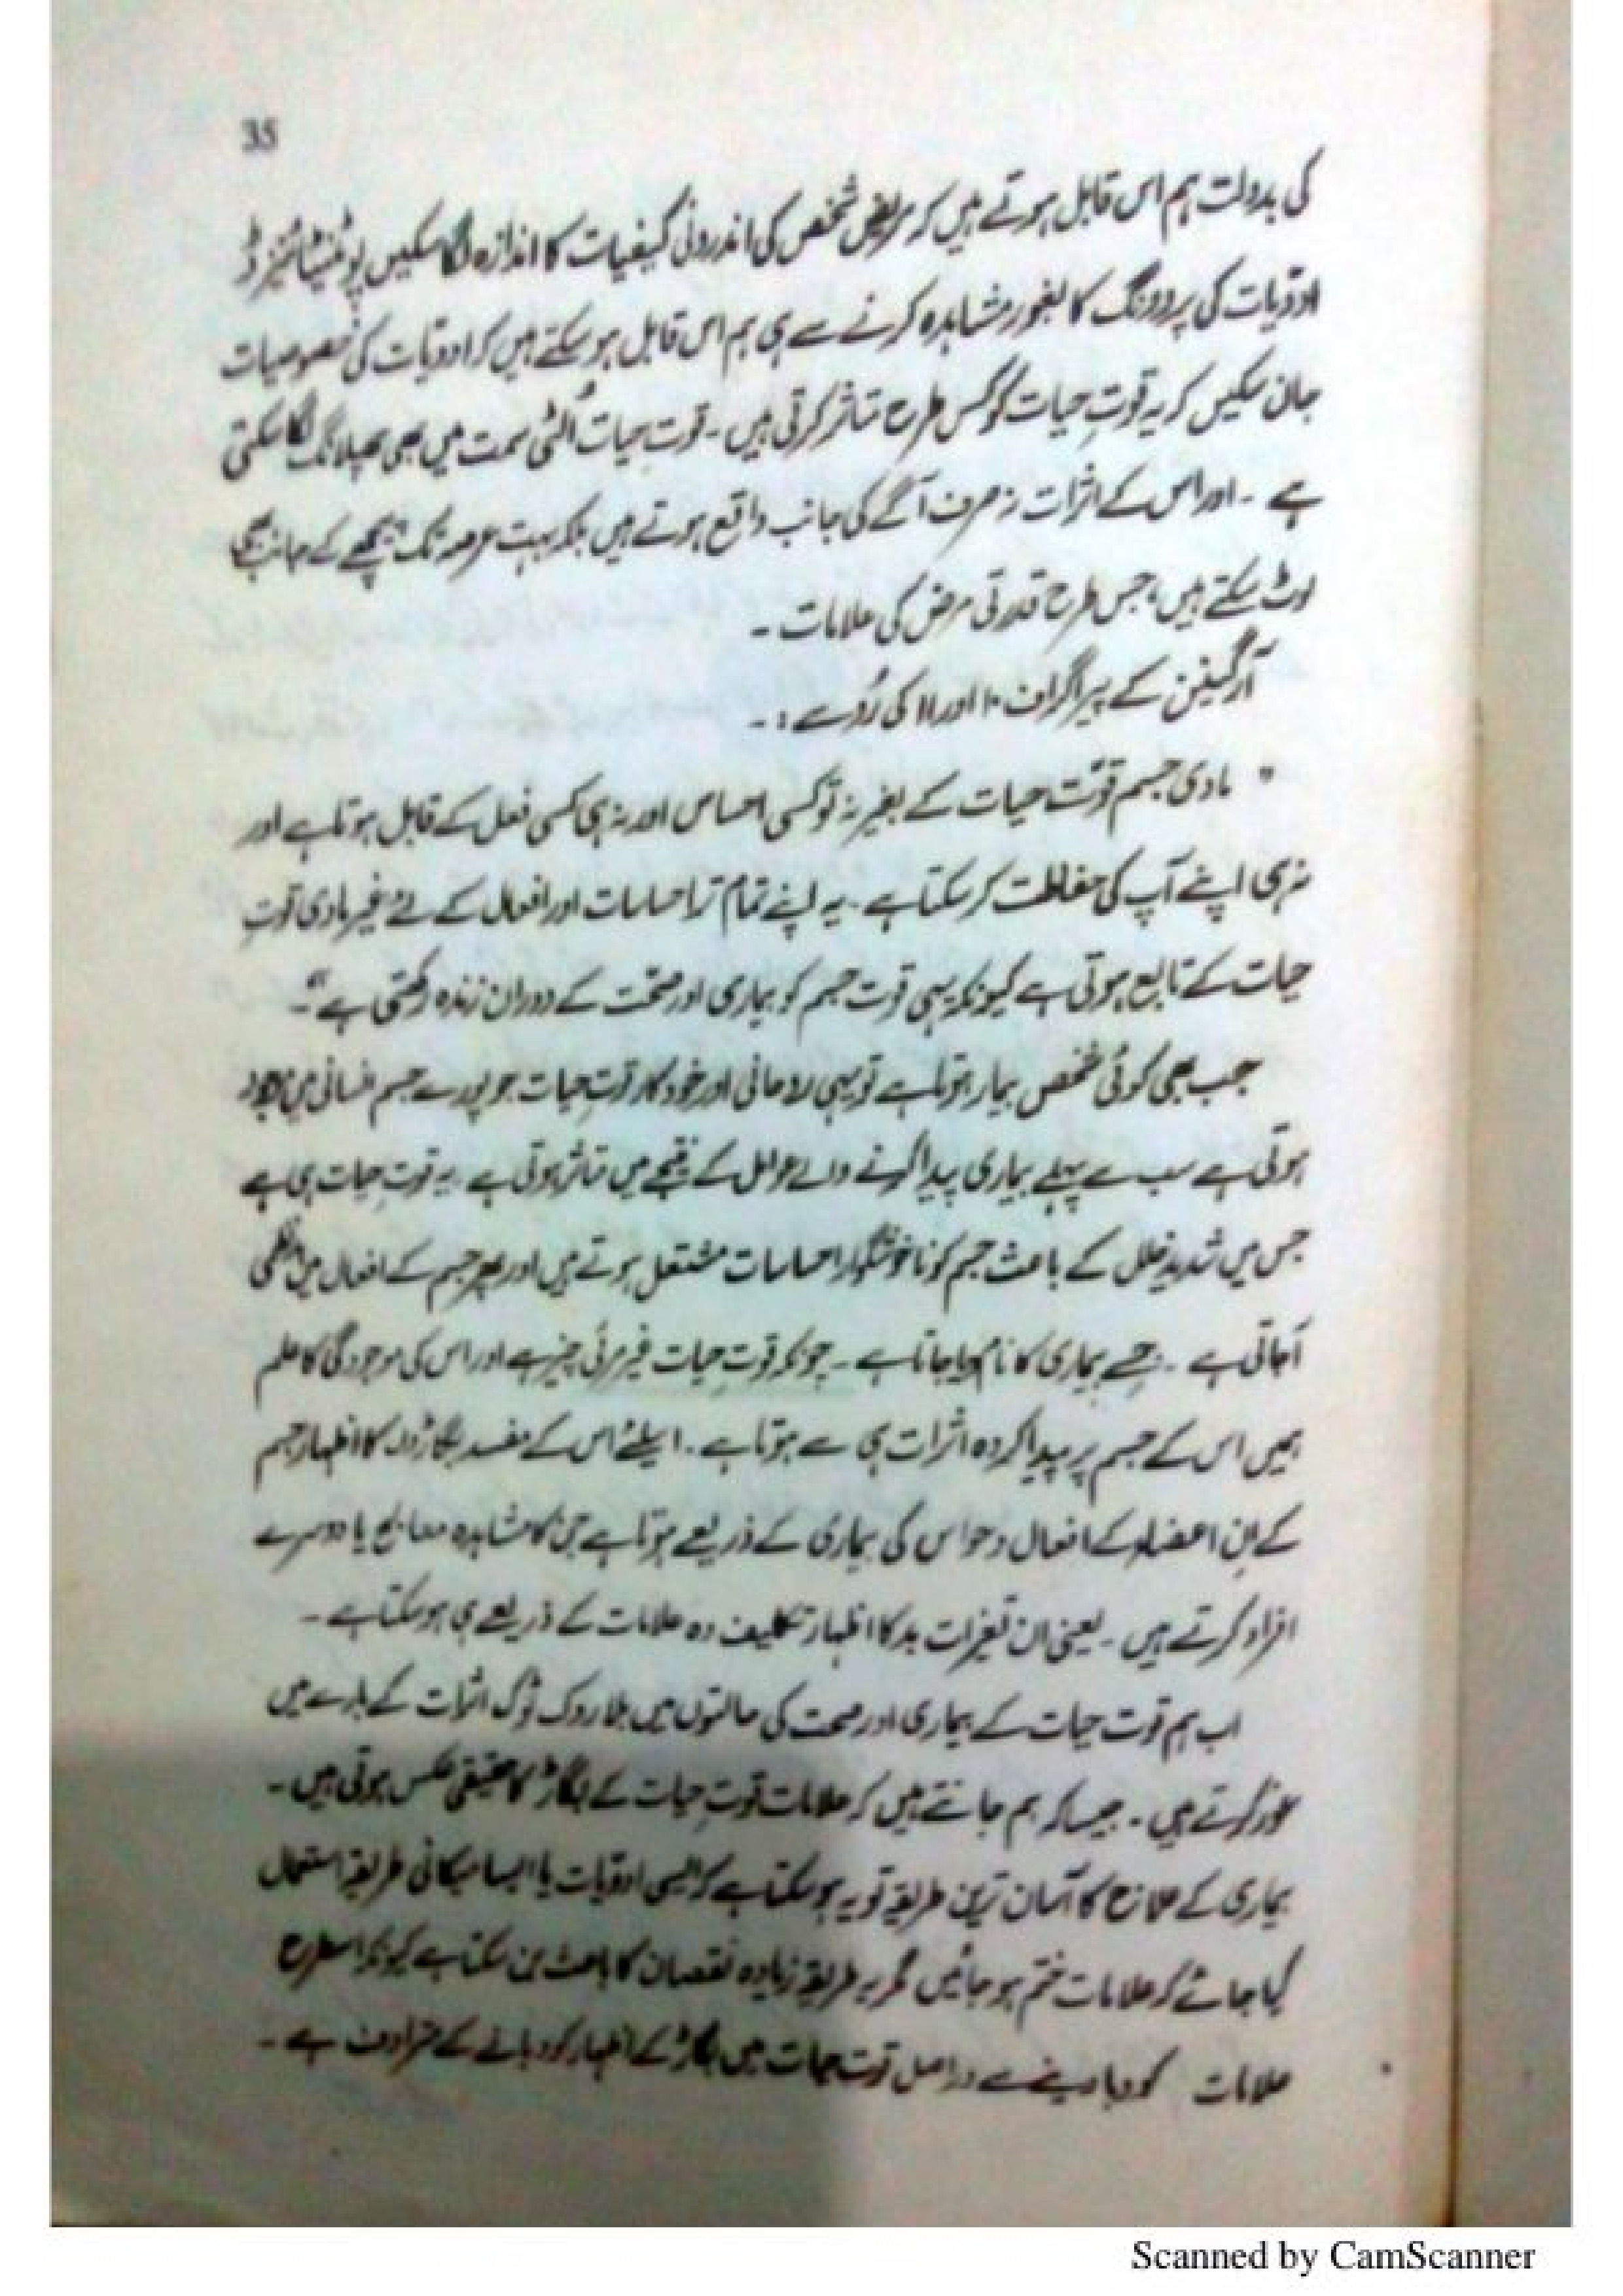 35
کی بدولت ہم اس قابل ہوتے ہیں کہ مریض شخص کی اندرونی کیفیات کا اندازہ لگا سکیں پوٹینشائیزڈ
ادویات کی پرووِنگ کا بغور مشاہدہ کرنے سے ہی ہم اس قابل ہو سکتے ہیں کہ ادویات کی خصوصیات
جان سکیں کہ یہ قوتِ حیات کو کس طرح متاثر کرتی ہیں ۔ قوتِ حیات اُلٹی سمت میں بھی چھلانگ لگا سکتی
ہے ۔ اور اس کے اثرات نہ صرف آگے کی جانب واقع ہوتے ہیں بلکہ بہت عرصہ تک پیچھے کے جانب بھی
لوٹ سکتے ہیں، جس طرح قدرتی مرض کی علامات ۔
آرگینن کے پیراگراف ۱۰ اور ۱۱ کی رُو سے : ۔
" مادی جسم قوّت حیات کے بغیر نہ تو کسی احساس اور نہ ہی کسی فعل کے قابل ہوتا ہے اور
نہ ہی اپنے آپ کی حفاظت کر سکتا ہے ۔ یہ اپنے تمام تر احساسات اور افعال کے لئے غیر مادی قوتِ
حیات کے تابع ہوتی ہے کیونکہ یہی قوت جسم کو بیماری اور صحّت کے دوران زندہ رکھتی ہے “۔
جب بھی کوئی شخص بیمار ہوتا ہے تو یہی روحانی اور خود کار قوتِ حیات جو پورے جسم انسانی میں موجود
ہوتی ہے سب سے پہلے بیماری پیدا کرنے والے عوامل کے نتیجے میں متاثر ہوتی ہے ۔ یہ قوتِ حیات ہی ہے
جس میں شدید خلل کے باعث جسم کو ناخوشگوار احساسات مشتعل ہوتے ہیں اور پھر جسم کے افعال میں بدنظمی
آ جاتی ہے ۔ جسے بیماری کا نام دیا جاتا ہے ۔ چونکہ قوتِ حیات غیر مرئی چیز ہے اور اس کی موجودگی کا علم
ہمیں اس کے جسم پر پیدا کردہ اثرات ہی سے ہوتا ہے ۔ اسلئے اس کے مفسد بگاڑوں کا اظہار جسم
کے اِن اعضاء کے افعال و حواس کی بیماری کے ذریعے ہوتا ہے جن کا مشاہدہ معالج یا دوسرے
افراد کرتے ہیں ۔ یعنی ان تغیرات بد کا اظہار تکلیف دہ علامات کے ذریعے ہی ہو سکتا ہے ۔
اب ہم قوت حیات کے بیماری اور صحت کی حالتوں میں بلا روک ٹوک اثرات کے بارے میں
غور کرتے ہیں ۔ جیسا کہ ہم جانتے ہیں کہ علامات قوتِ حیات کے بگاڑ کا حقیقی عکس ہوتی ہیں ۔
بیماری کے علاج کا آسان ترین طریقہ تو یہ ہو سکتا ہے کہ ایسی ادویات یا ایسا میکانی طریقہ استعمال
کیا جائے کہ علامات ختم ہو جائیں مگر یہ طریقہ زیادہ نقصان کا باعث بن سکتا ہے کیونکہ اسطرح
علامات کو دبا دینے سے دراصل قوت حیات میں بگاڑ کے اظہار کو دبانے کے مترادف ہے ۔
Scanned by CamScanner